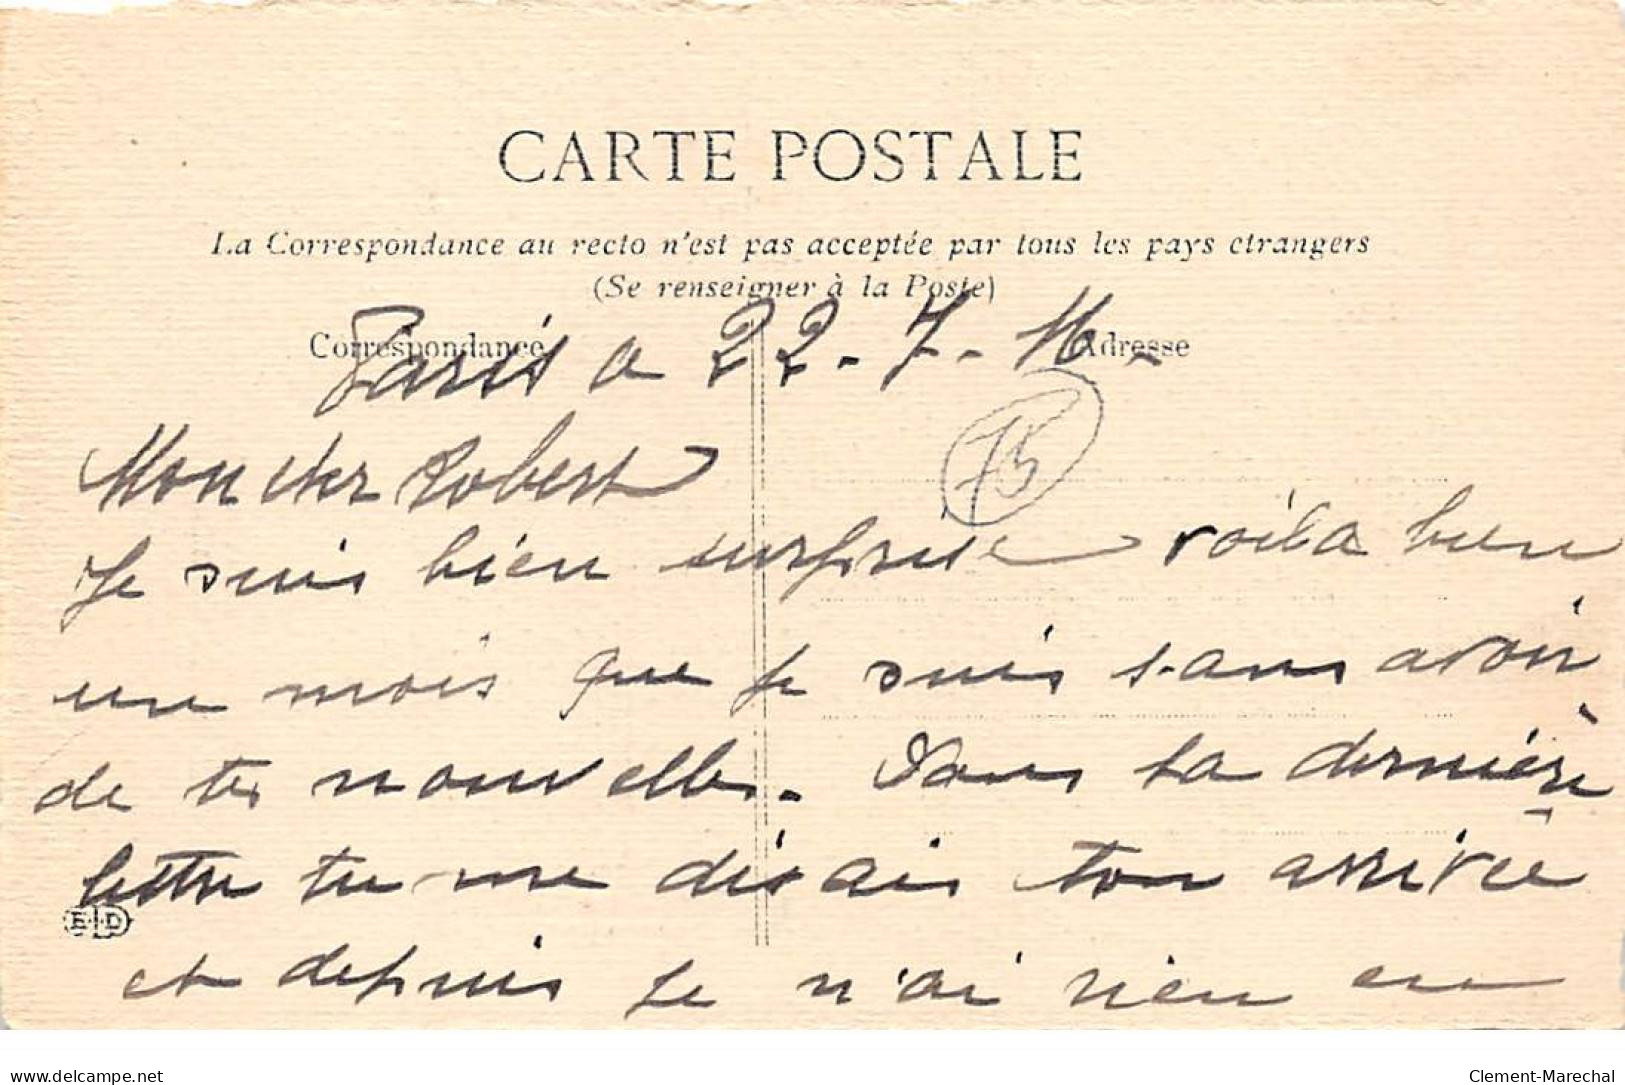 CARTE POSTALE
La Correspondance au recto n'est pas acceptée par tous les pays étrangers
(Se renseigner à la Poste)
Correspondance Adresse
Paris a 22-7-16-
75
Mon cher Robert
Je suis bien surprise voila bien
un mois que je suis sans avoir
de tes nouvelles. Dans ta dernière
lettre tu me disais ton arrivée
E.L.D
et depuis je n'ai rien eu
delcampe.net
Clement-Marechal